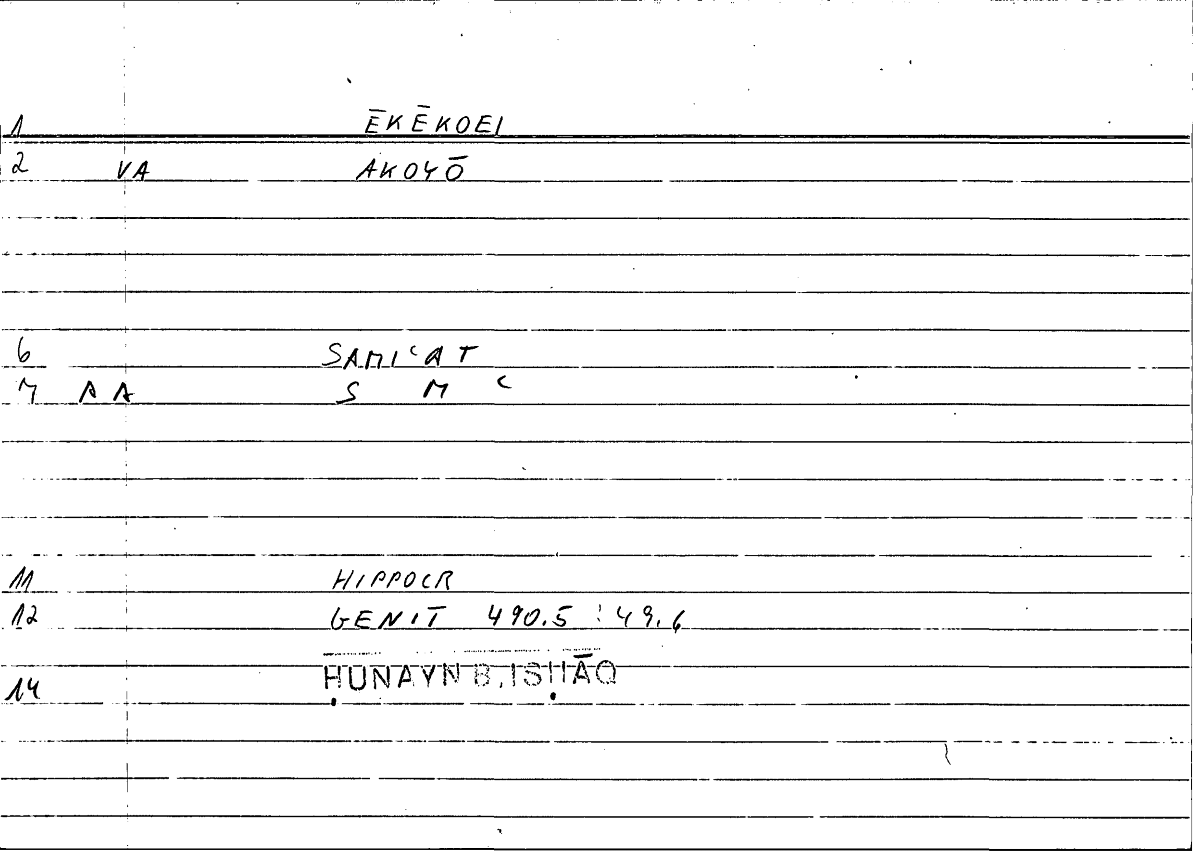 1 ĒKĒKOEI
2 VA AKOYŌ
6 SAMIʿAT
7 AA S M ʿ
11 HIPPOCR
12 GENIT 490.5 : 49.6
14 ḤUNAYN B. ISḤĀQ